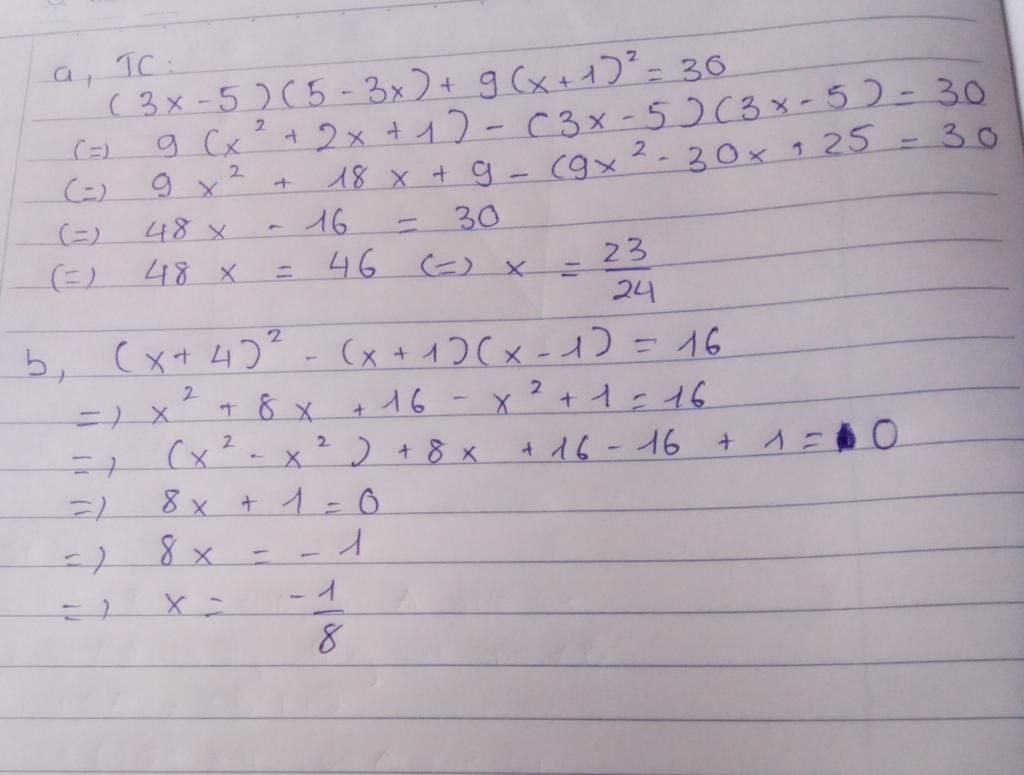 a, TC:
(3x-5)(5-3x)+9(x+1)²=30
(=) 9(x²+2x+1)-(3x-5)(3x-5)=30
(=) 9x²+18x+9-(9x²-30x+25=30
(=) 48x-16=30
(=) 48x=46 (=) x=23/24
b, (x+4)²-(x+1)(x-1)=16
=) x²+8x+16-x²+1=16
=) (x²-x²)+8x+16-16+1=0
=) 8x+1=0
=) 8x=-1
=) x=-1/8